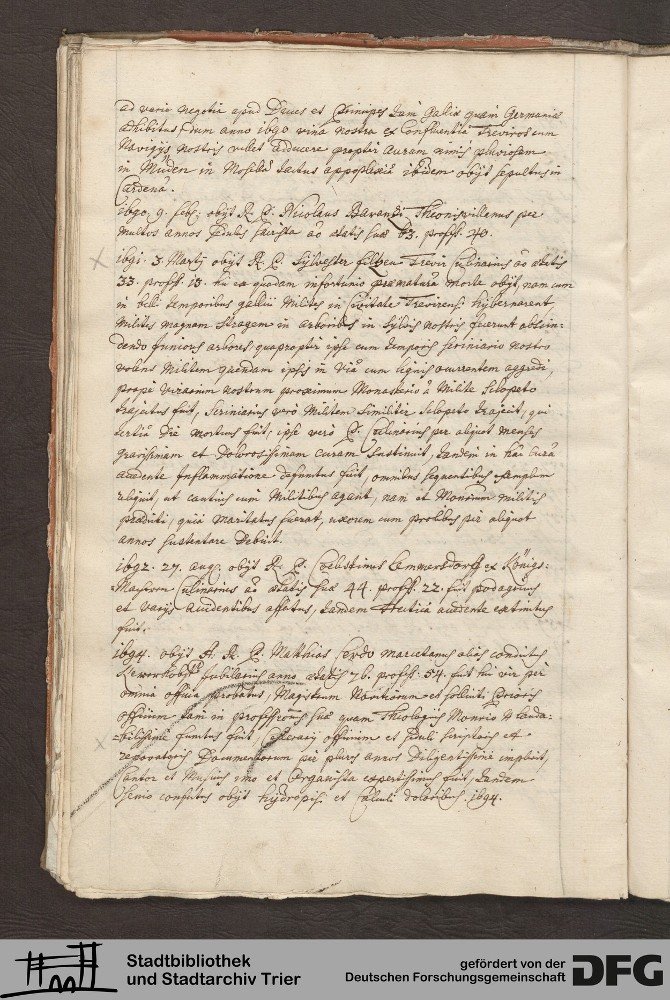 ad varia negotia apud Duces et Principes tam Galliae quam Germaniae
adhibitus, dum anno 1690 vina nostra ex Confluentia Treviros cum
Navigijs nostris vellet adducere propter auram nimis pluviosam
in Müden in Mosella tactus appoplexia ibidem obijt sepultus in
Cardena.
1690. 9. feb: obijt R. P. Nicolaus Theonisvillanus per
multos annos sedulus sacrista aõ aetatis suae 63. profess. 40.
1691. 3. Martij obijt R. P. Sylvester Trevir Culinarius aõ aetatis
33. profess. 13. hic ex quodam infortunio praematura morte obijt, nam cum
in belli temporibus gallici Milites in Civitate Trevirensi hybernarent,
Milites magnam stragem in arboribus in Sylvis nostris fecerunt abscin-
dendo juniores arbores, quapropter ipse cum temporis scriniario nostro
volens Militem quendam ipsis in via cum lignis occurrentem aggredi,
prope vivarium nostrum proximum Monasterio a Milite sclopeto
trajectus fuit, scriniarius vero Militem similiter sclopeto trajecit, qui
tertia die mortuus fuit, ipse vero P. Culinarius per aliquot menses
gravissimam et dolorosissimam curam sustinuit, tandem in hac cura
accedente inflammatione defunctus fuit, omnibus sequentibus exemplum
reliquit, ut cautius cum Militibus agant, nam et Monrium militis
praedicti, quia maritatus fuerat, uxorem cum prolibus per aliquot
annos sustentare debuit.
1692. 27. aug. obijt R. P. Coelestinus Lommersdorff ex Königs-
Machern Culinarius aõ aetatis suae 44. profess. 22. fuit podagricus
et varijs accidentibus affectus, tandem Hectica accedente extinctus
fuit.
1694. obijt A. R. P. Matthias Cerdo alias
Jubilarius anno aetatis 76. profess. 54. fuit hic vir per
omnia officia probatus, Magistrum Novitiorum et solliciti Prioris
officium tam in professione sua quam Theologus Monrio
-bilissime functus fuit, officium et seduli scriptoris et
renovatoris Documentorum per plures annos diligentissime implevit,
Cantor et Musicus imo et Organista expertissimus fuit, tandem
senio confectus obijt hydropisi et Calculi doloribus. 1694.
Stadtbibliothek
und Stadtarchiv Trier
gefördert von der
Deutschen Forschungsgemeinschaft
DFG